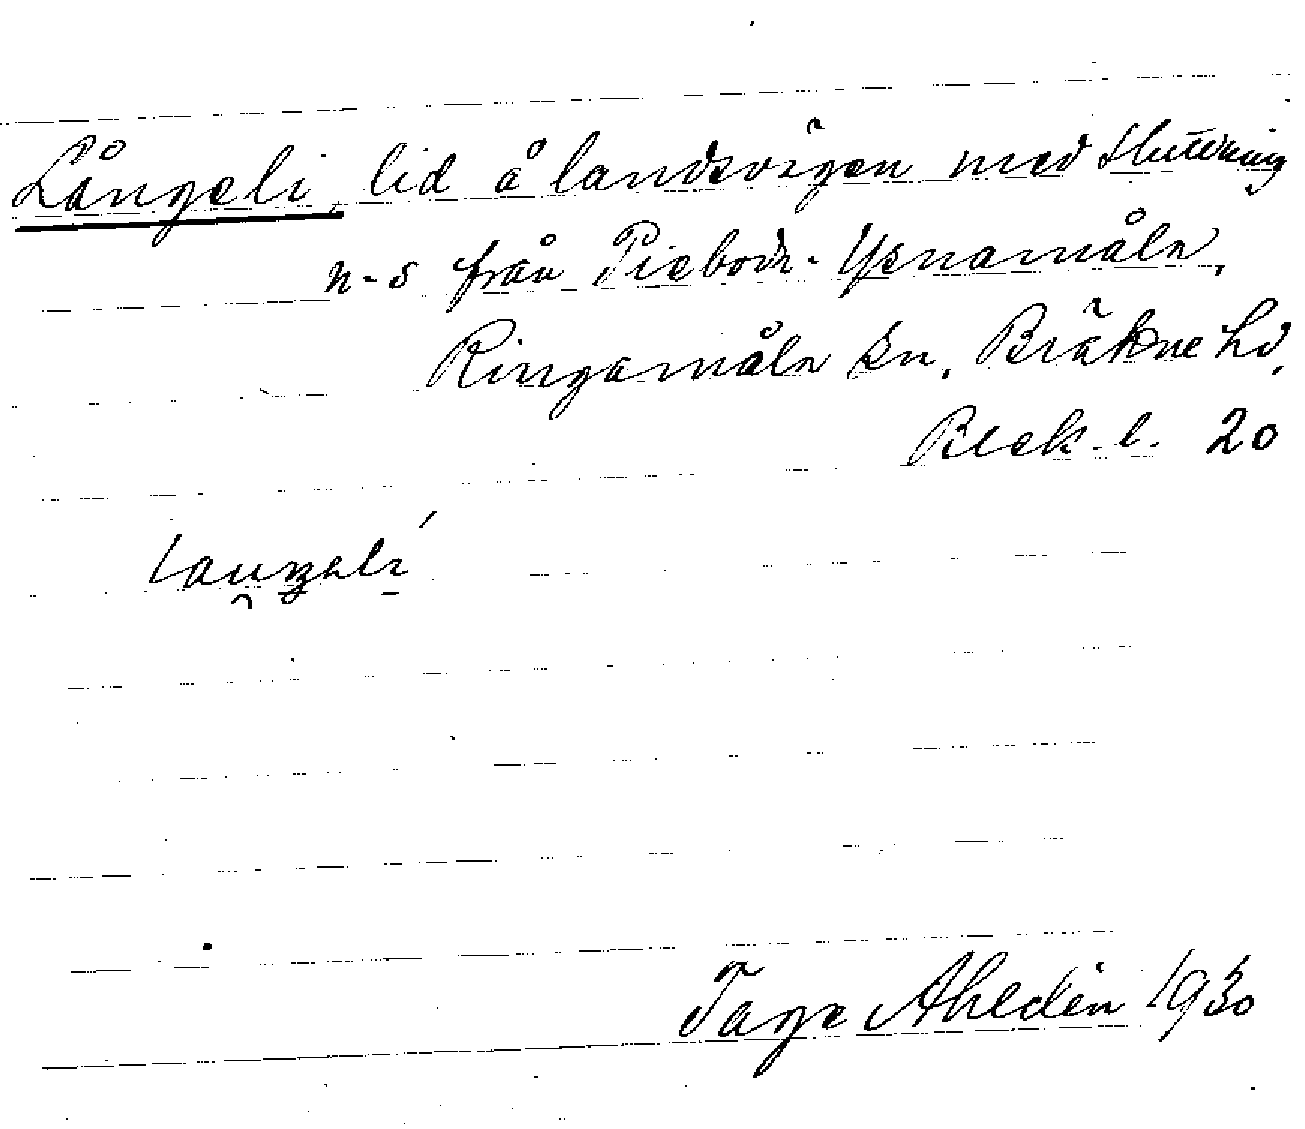 Långeli, lid å landsvägen med sluttning
n-s från Pieboda-Ysnamåla,
Ringamåla sn, Bräkne hd,
Bl ek.-l. 20
Tage Ahldén 1930